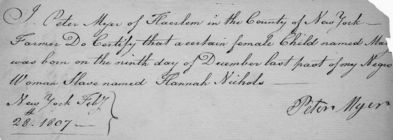 I, Peter Myer of Haerlem in the County of New York
Farmer Do Certify that a certain female Child named Ma
was born on the ninth day of December last past of my Negro
Woman Slave named Hannah Nichols
New York Feby
28th 1807
Peter Myer